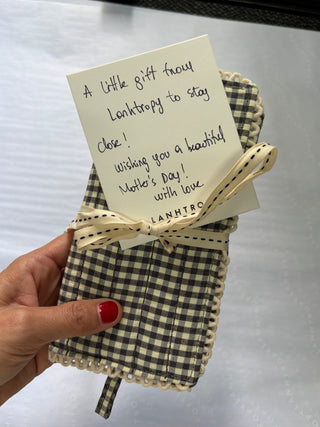 A little gift from
Lanhtropy to stay
close!
Wishing you a beautiful
Mother's Day!
with love
LANHTRO